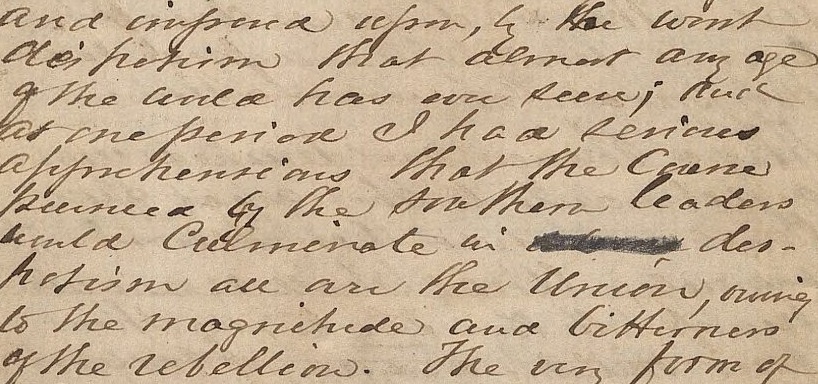 and imposed upon, by the worst
despotism that almost any age
of the world has ever seen; and
at one period I had serious
apprehensions that the Course
pursued by the Southern leaders
would Culminate in des-
potism all over the Union, owing
to the magnitude and bitterness
of the rebellion. The very form of